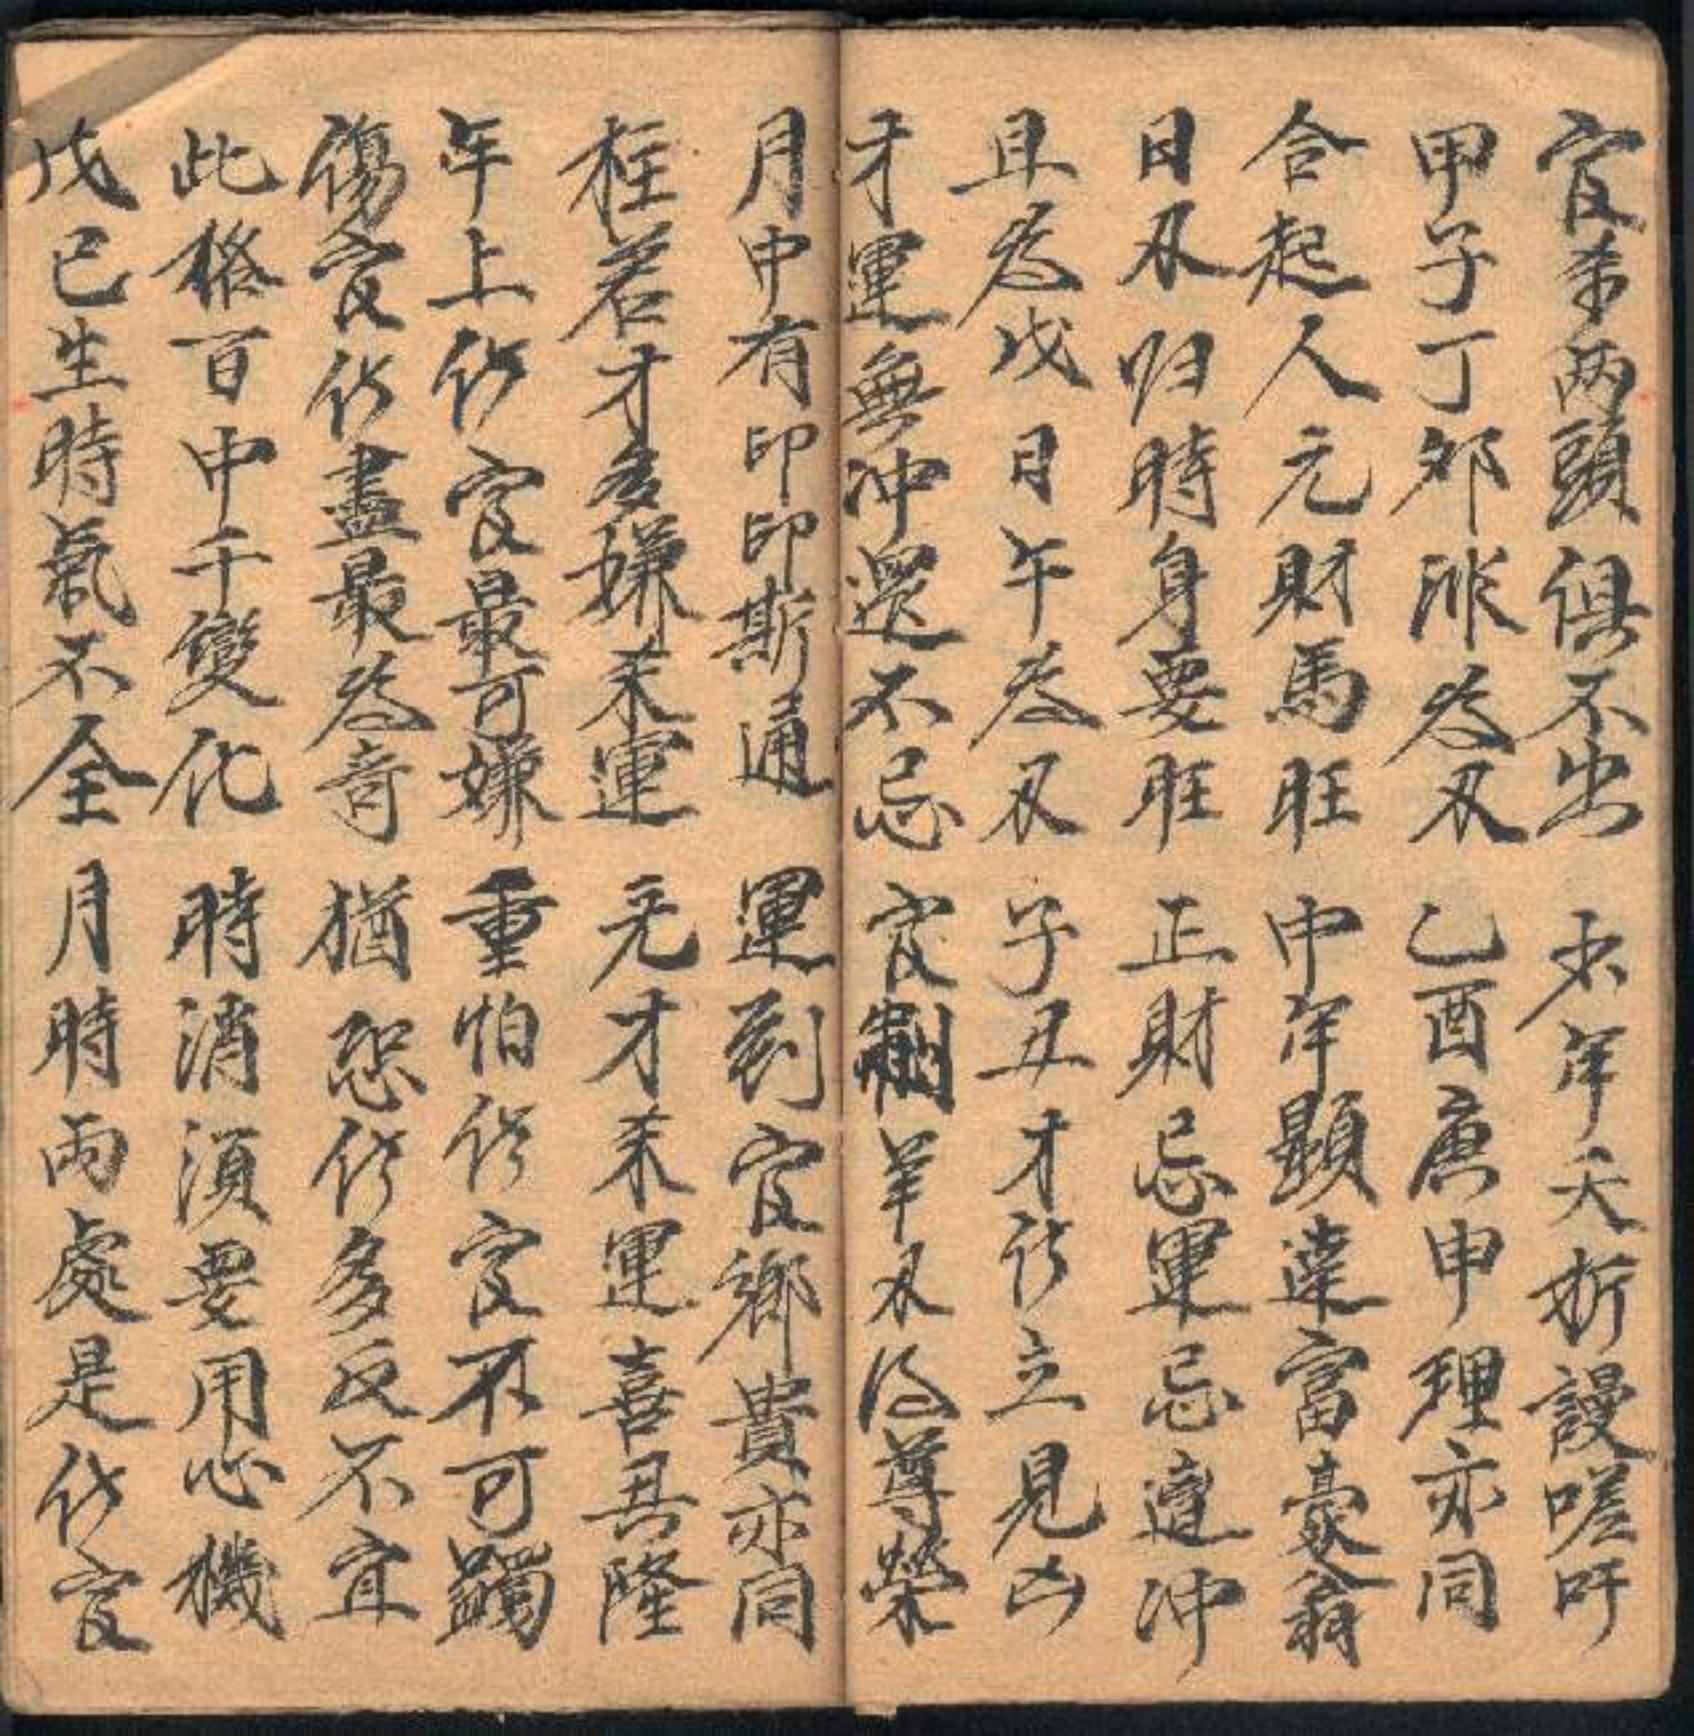 官杀两頭俱不出 少年夭折謾嗟吁
甲子丁卯非為刃 乙酉庚申理亦同
合起人元財馬旺 中年顯達富豪翁
日刃归時身要旺 正財忌運忌逢冲
且為戊日午為刃 子丑才行立見凶
才運無冲還不忌 官制羊刃得尊榮
月中有印印斯通 運到官鄉貴亦同
柱若才多嫌才運 无才才運喜具隆
年上伤官最可嫌 重怕伤官不可蠲
傷官伤盡最為奇 猶恐伤多反不宜
此格百中千變化 時消須要用心機
戊己生時氣不全 月時两處是伤官